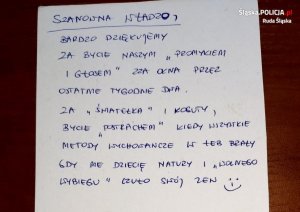 Śląska.POLICJA.pl
Ruda Śląska
SZANOWNA WŁADZO,
BARDZO DZIĘKUJEMY
ZA BYCIE NASZYM „PROMYKIEM
I GŁOSEM" ZZA OKNA PRZEZ
OSTATNIE TYGODNIE DNIA.
ZA „ŚWIATEŁKA" I KOGUTY,
BYCIE "POSTRACHEM" KIEDY WSZYSTKIE
METODY WYCHOWAWCZE W ŁEB BRAŁY
GDY ME DZIECIĘ NATURY I „WOLNEGO
WYBIEGU" CZUŁO SWÓJ ZEN